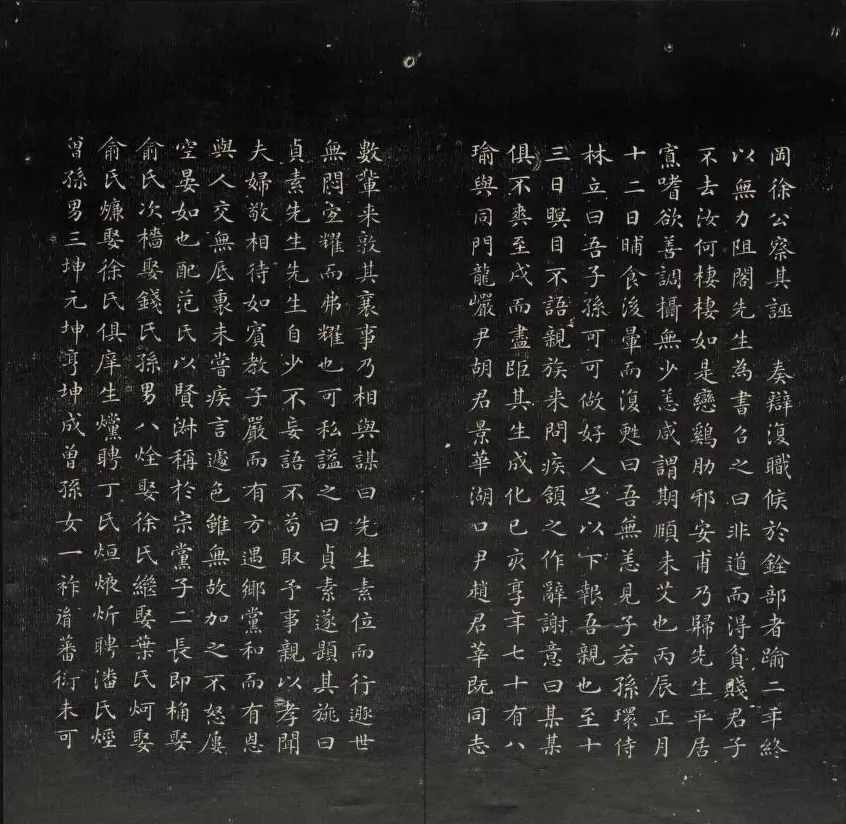 岡徐公察其誣　奏辯復職候於銓部者踰二年終
以無力阻閣先生為書召之曰非道而得貧賤君子
不去汝何棲棲如是戀鷄肋邪安甫乃歸先生平居
寡嗜欲善調攝無少恙咸謂期頤未艾也丙辰正月
十二日晡食後暈而復甦曰吾無恙見子若孫環侍
林立曰吾子孫可可做好人足以下報吾親也至十
三日瞑目不語親族来問疾頷之作辭謝意曰某某
俱不爽至戌而盡距其生成化己亥享年七十有八
瑜與同門龍巖尹胡君景華湖口尹趙君莘既同志
數輩来敦其襄事乃相與謀曰先生素位而行遯世
無悶宜耀而弗耀也可私謚之曰貞素遂題其旐曰
貞素先生先生自少不妄語不苟取予事親以孝聞
夫婦敬相待如賓教子嚴而有方遇鄉黨和而有恩
與人交無底裏未嘗疾言遽色雖無故加之不怒屢
空晏如也配范氏以賢淑稱於宗黨子二長即桷娶
俞氏次檣娶錢氏孫男八烇娶徐氏繼娶葉氏炣娶
俞氏㷰娶徐氏俱庠生爣聘丁氏烜焲炘聘潘氏烴
曾孫男三坤元坤亨坤成曾孫女一祚胤蕃衍未可